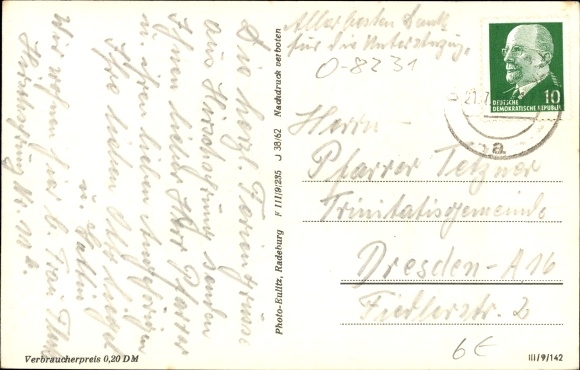 Die herzl. Feriengrüsse
aus Hirschsprung senden
Ihnen lieber Herr Pfarrer
u. Ihren lieben Angehörigen
Ihre
u. Gattin
Wir wohnen hier b. Frau
Hirschsprung Nr.
Allerbesten Dank
für die Unterstützung.
O-8231
Herrn
Pfarrer Tetzner
Trinitatisgemeinde
Dresden-A16
Fiedlerstr. 2
6€
10
DEUTSCHE
DEMOKRATISCHE REPUBLIK
21.7
a
Photo-Rulitz, Radeburg F III/9/235 J 38/62 Nachdruck verboten
Verbraucherpreis 0,20 DM
III/9/142